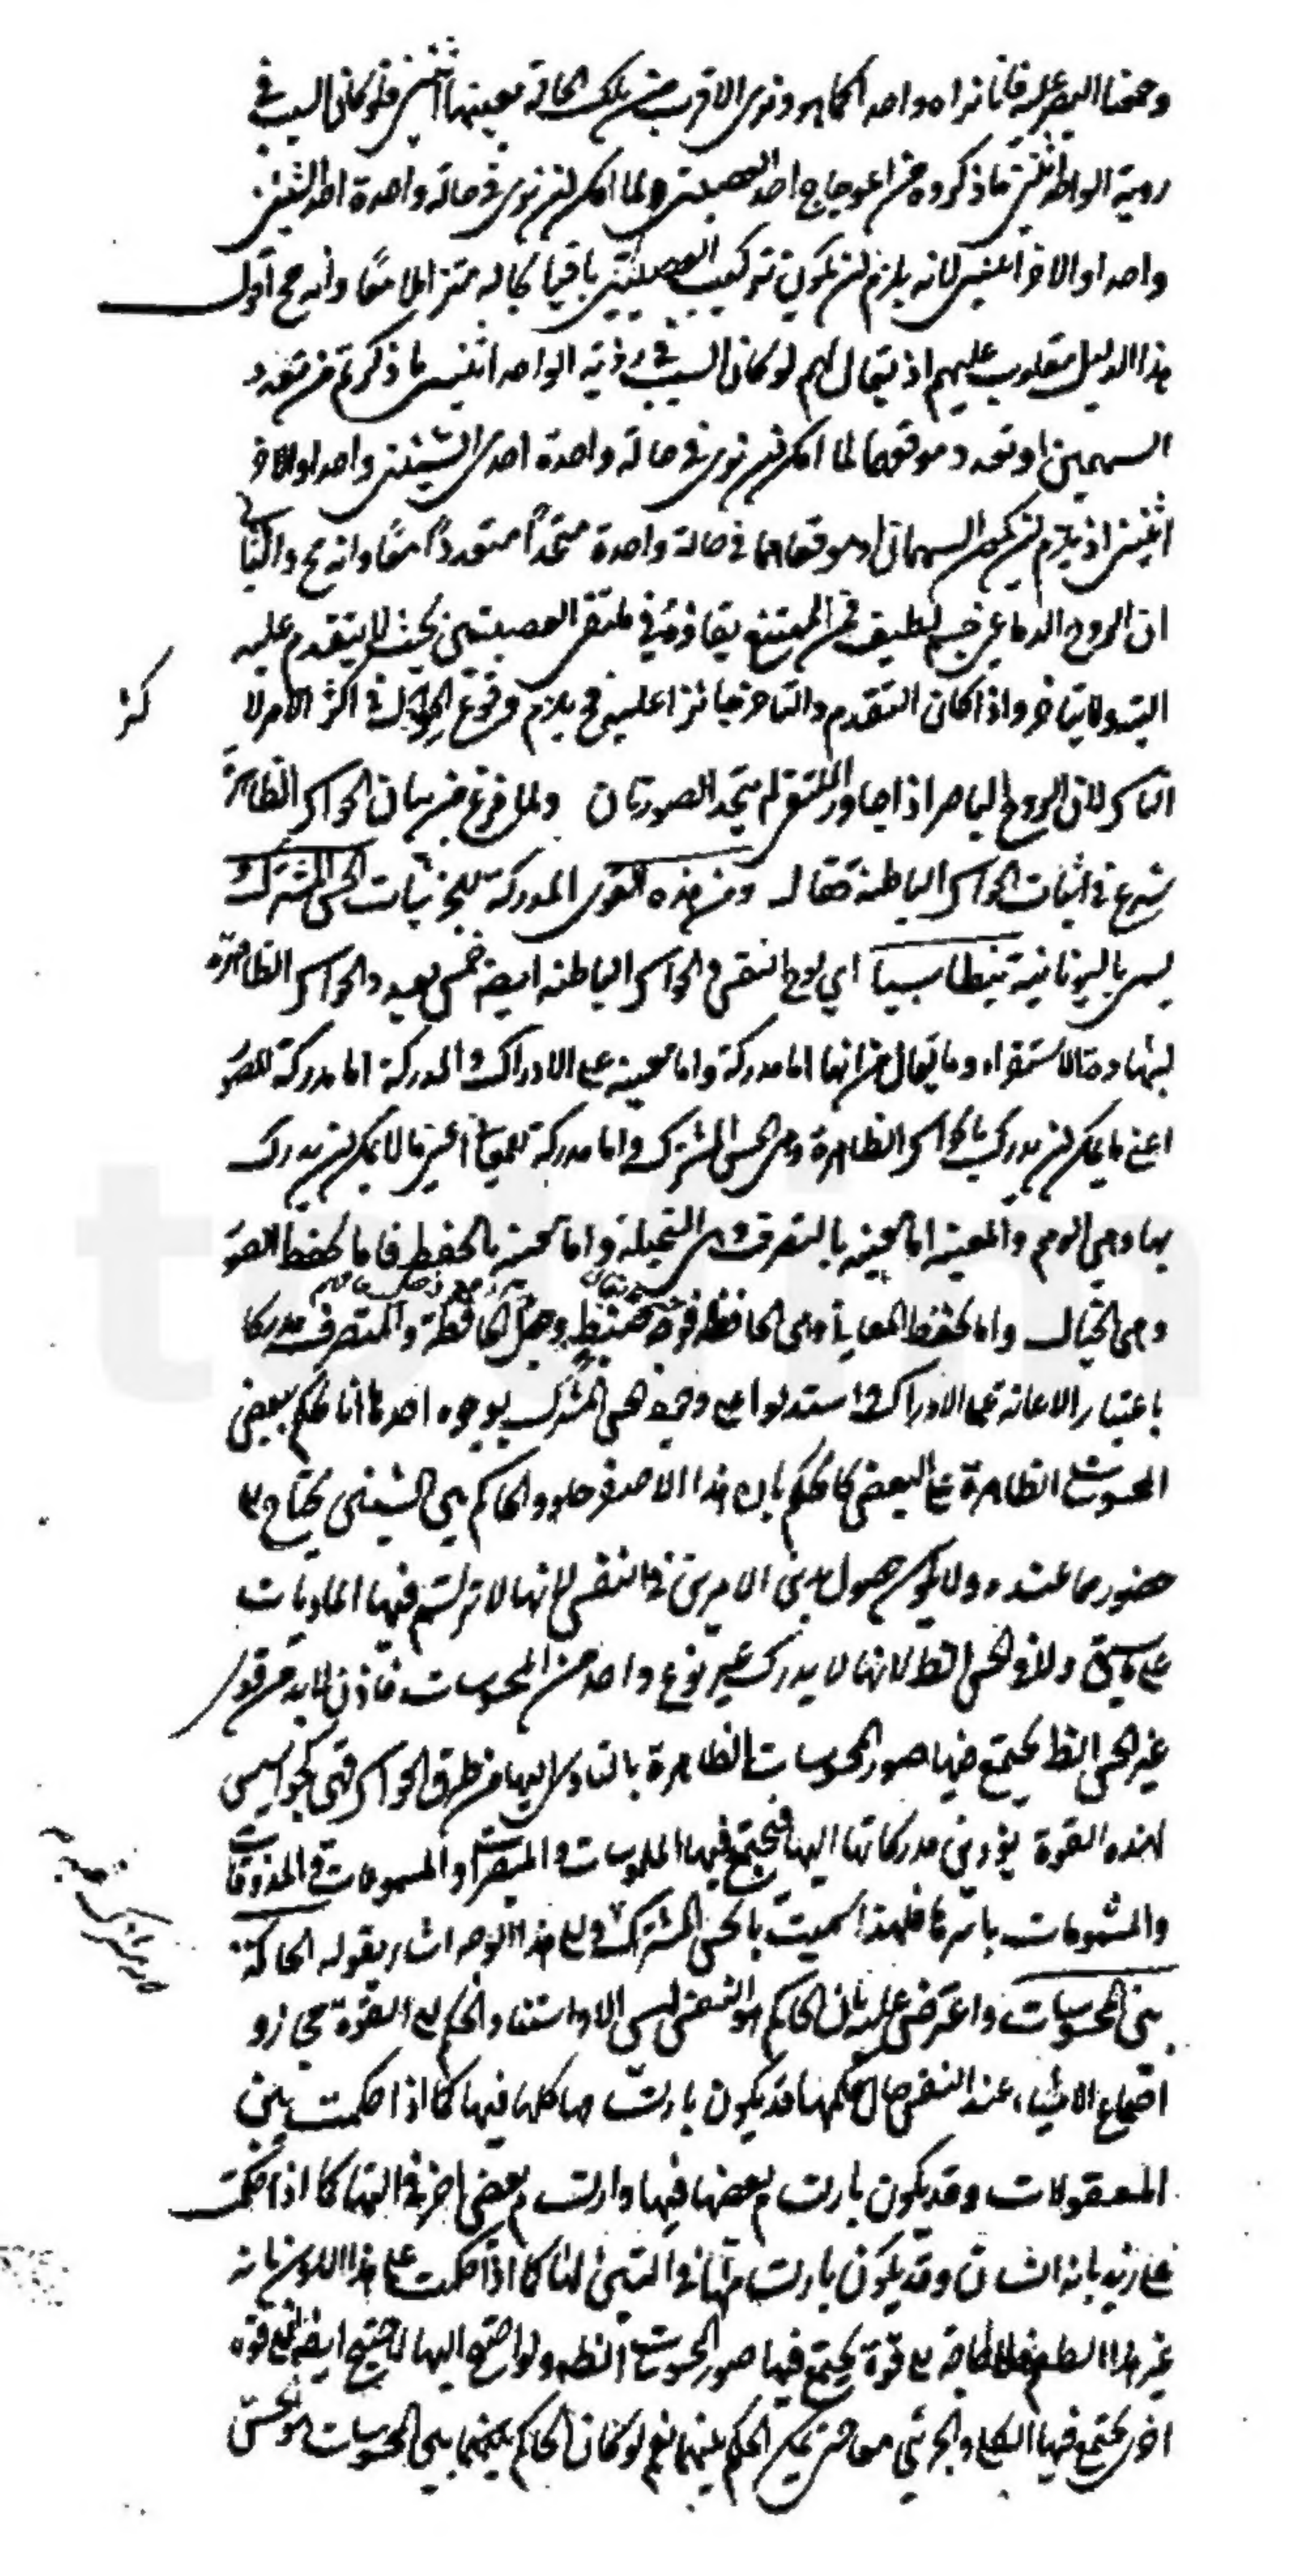 وجمعنا البصر عليه فانا نراه واحدا كما هو ونرى الاقرب في تلك الحالة بعينها اثنين فلو كان السبب في
روية الواحد اثنين ما ذكروه من اعوجاج احد العصبتين لما امكن ان نرى في حالة واحدة احد الشيئين
واحدا والاخر اثنين لانه يلزم ان يكون تركيب العصبتين باقيا بحاله متزايلا معا وانه مح اقول
هذا الدليل مقلوب عليهم اذ يقال لهم لو كان السبب في روئية الواحد اثنين ما ذكرتم من تعدد
السهمين او تعدد موقعهما لما امكن ان نرى في حالة واحدة احدى الشيئين واحدا والاخر
اثنين اذ يلزم ان يكون السهمان او موقعاهما في حالة واحدة متحدا متعددا معا وانه مح والثاني
ان الروح الدماغي جسم لطيف فمن الممتنع بقاؤه في ملتقى العصبتين بحيث لا يتقدم عليه
البتة ولا يتاخر واذا كان التقدم والتاخر جائزا عليه فح يلزم وقوع الحول في اكثر الامر لا
اكثر
الناس لان الروح الباصر اذا جاوز الملتقى لم يتحد الصورتان ولما فرغ من بيان الحواس الظاهرة
شرع في اثبات الحواس الباطنة فقال ومن هذه القوى المدركة للجزئيات الحس المشترك
يسمى باليونانية بنطاسيا اي لوح النفس والحواس الباطنة ايضا خمس بعدد الحواس الظاهرة
بشهادة الاستقراء وما يقال من انها اما مدركة واما معينة على الادراك والمدركة اما مدركة للصور
اعني ما يمكن ان يدرك بالحواس الظاهرة وهي الحس المشترك واما مدركة للمعاني اعني ما لا يمكن ان يدرك
بها وهي الوهم والمعينة اما معينة بالتصرف وهي المتخيلة واما معينة بالحفظ فاما تحفظ الصور
وهي الخيال واما تحفظ المعاني وهي الحافظة فوجه ضبط وجعل الحافظة والمتصرفة مدركا
باعتبار الاعانة على الادراك واستدلوا على وجود الحس المشترك بوجوه احدها انا نحكم ببعض
المحسوسات الظاهرة على البعض كما نحكم بان هذا الاصفر حلو والحاكم بين الشيئين يحتاج الى
حضورهما عنده ولا يكون حصول هذين الامرين في النفس لانها لا ترتسم فيها الماديات
على ما سيق ولا في الحس الظ لانها لا يدرك غير نوع واحد من المحسوسات فاذن لا بد من قوة
غير الحس الظ يجتمع فيها صور المحسوسات الظاهرة بالتادي اليها من طرق الحواس فهي كجواسيس
لهذه القوة يؤدي مدركاتها اليها فيجتمع فيها الملموسات والمبصرات والمسموعات والمذوقات
والمشمومات باسرها فلهذا سميت بالحس المشترك والى هذا الوجه اشار بقوله الحاكمة
بين المحسوسات واعترض عليه بان الحاكم هو النفس ليس الا واستناد الحكم الى القوة مجاز و
اجتماع الاشياء عند النفس حال حكمها قد يكون بارتسامها كلها فيها كما اذا حكمت بين
المعقولات وقد يكون بارتسام بعضها فيها وارتسام بعض اخر في التها كما اذا حكمت
على زيد بانه انسان وقد يكون بارتسامها في التين لها كما اذا حكمت على هذا اللون بانه
غير هذا الطعم فلا حاجة الى قوة يجتمع فيها صور المحسوسات الظ ولو احتيج اليها لاحتيج ايضا الى قوة
اخرى يجتمع فيها الكلي والجزئي معا حتى يمكن الحكم بينهما نعم لو كان الحاكم بينهما بين المحسوسات هو الحس